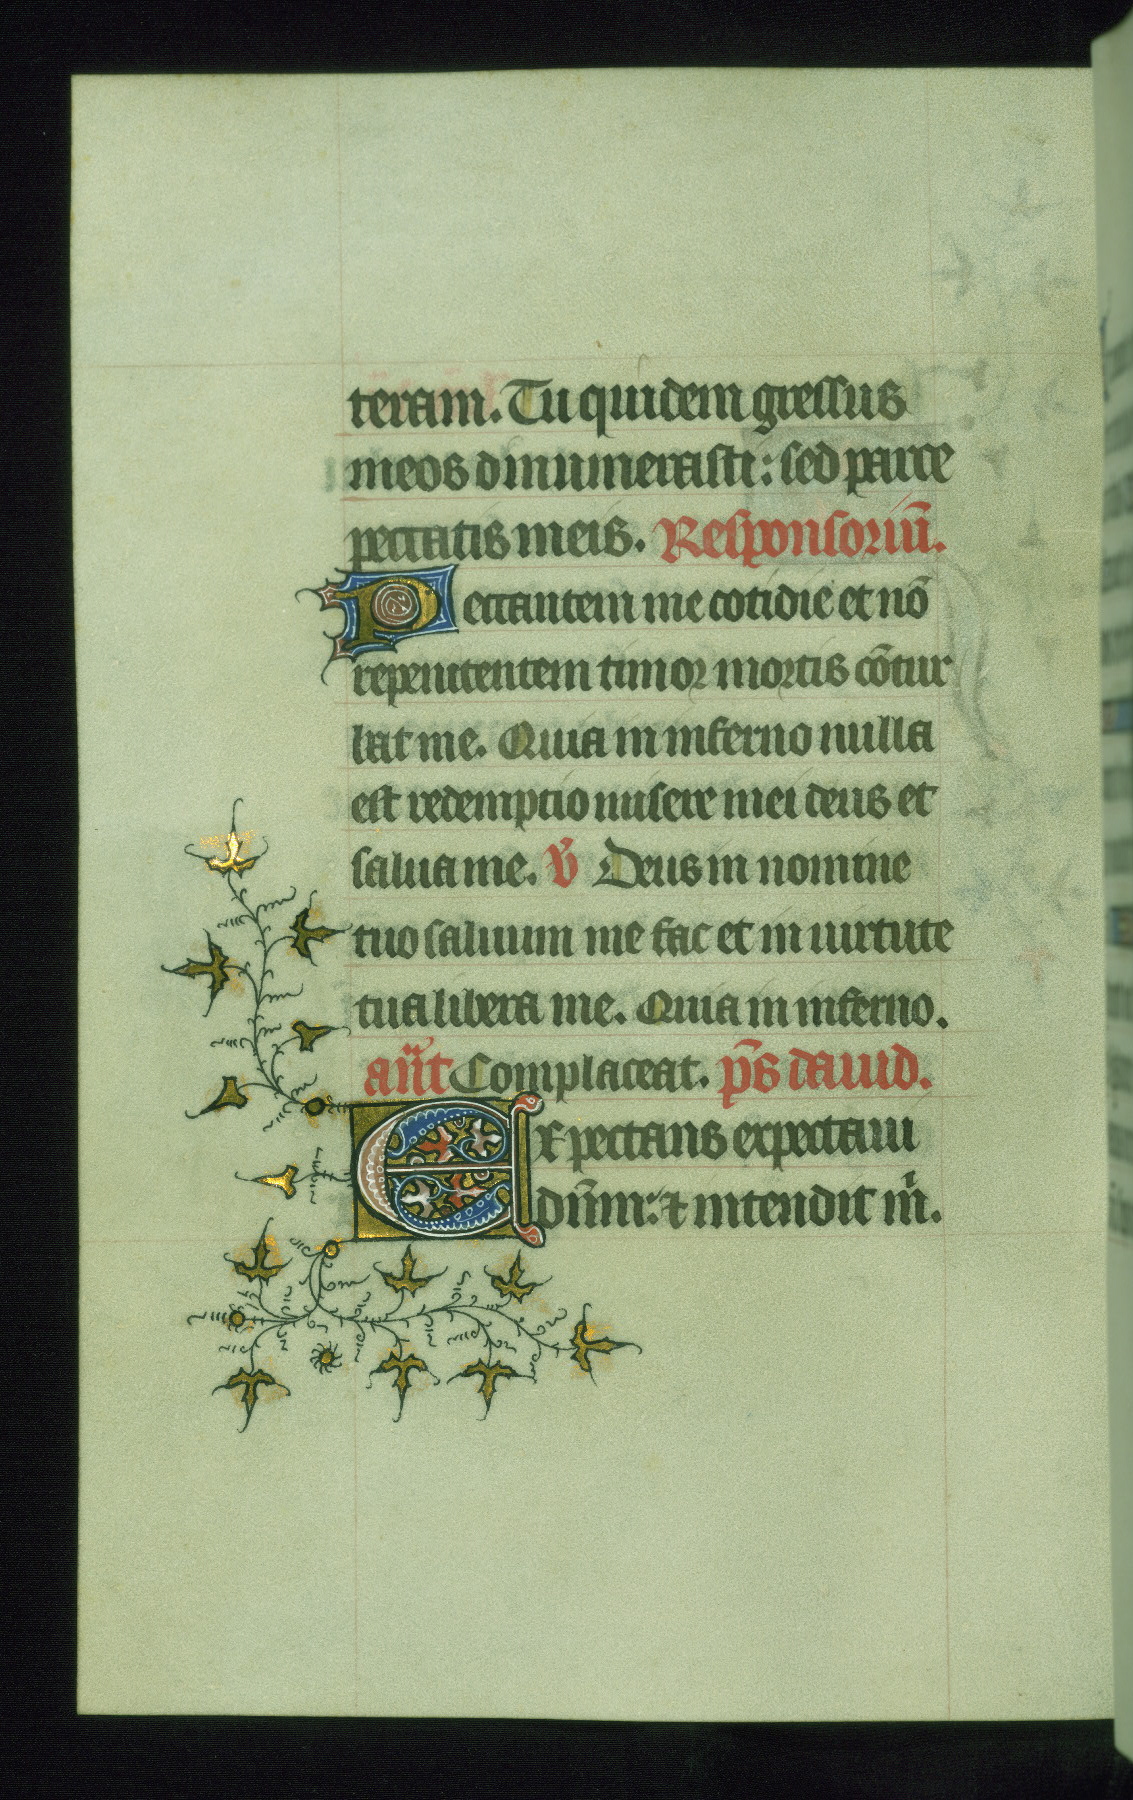 teram. Tu quidem gressus
meos dinumerasti: sed parce
peccatis meis. Responsoriū.
Peccantem me cotidie et nō
repenitentem timor mortis cōtur
bat me. Quia in inferno nulla
est redemptio misere mei deus et
salua me. v̄ Deus in nomine
tuo saluum me fac et in uirtute
tua libera me. Quia in inferno.
Complaceat. p̄s dauid.
Expectans expectaui
dn̄m: et intendit m̄.